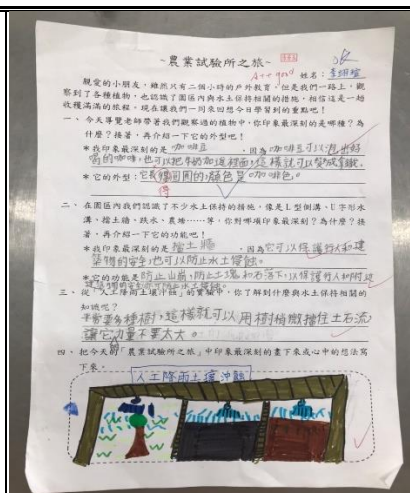 ~農業試驗所之旅~
A++ good
姓名:
親愛的小朋友,雖然只有二個小時的戶外教育,但是我們一路上,觀
察到了各種植物,也認識了園區內與水土保持相關的措施,相信這是一趟
收穫滿滿的旅程,現在讓我們一同來回想今日學習到的重點吧!
一、今天導覽老師帶著我們觀察過的植物中,你印象最深刻的是哪種?為
什麼?接著,再介紹一下它的外型吧!
*我印象最深刻的是 咖啡豆 ,因為咖啡豆可以泡出好
喝的咖啡,也可以把牛奶加進裡面,這樣就可以變成拿鐵。
*它的外型:它長得圓圓的,顏色是咖啡色。
得
二、在園區內我們認識了不少水土保持的措施,像是L型側溝、U字形水
溝、擋土牆、跌水、農塘……等,你對哪項印象最深刻?為什麼?接
著,再介紹一下它的功能吧!
*我印象最深刻的是 擋土牆 ,因為它可以保護行人和建
築物的安全,也可以防止水土流失。
*它的功能是防止山崩,防止土塊和石落下,以保護行人和附近
三、從「人工降雨土壤沖蝕」的實驗中,你了解到什麼與水土保持相關的
知識呢?
需要多種樹,這樣就可以用樹稍微擋住土石流,
讓它力量不要太大。
四、把今天的「農業試驗所之旅」中印象最深刻的畫下來或心中的想法寫
下來。
人工降雨土壤沖蝕